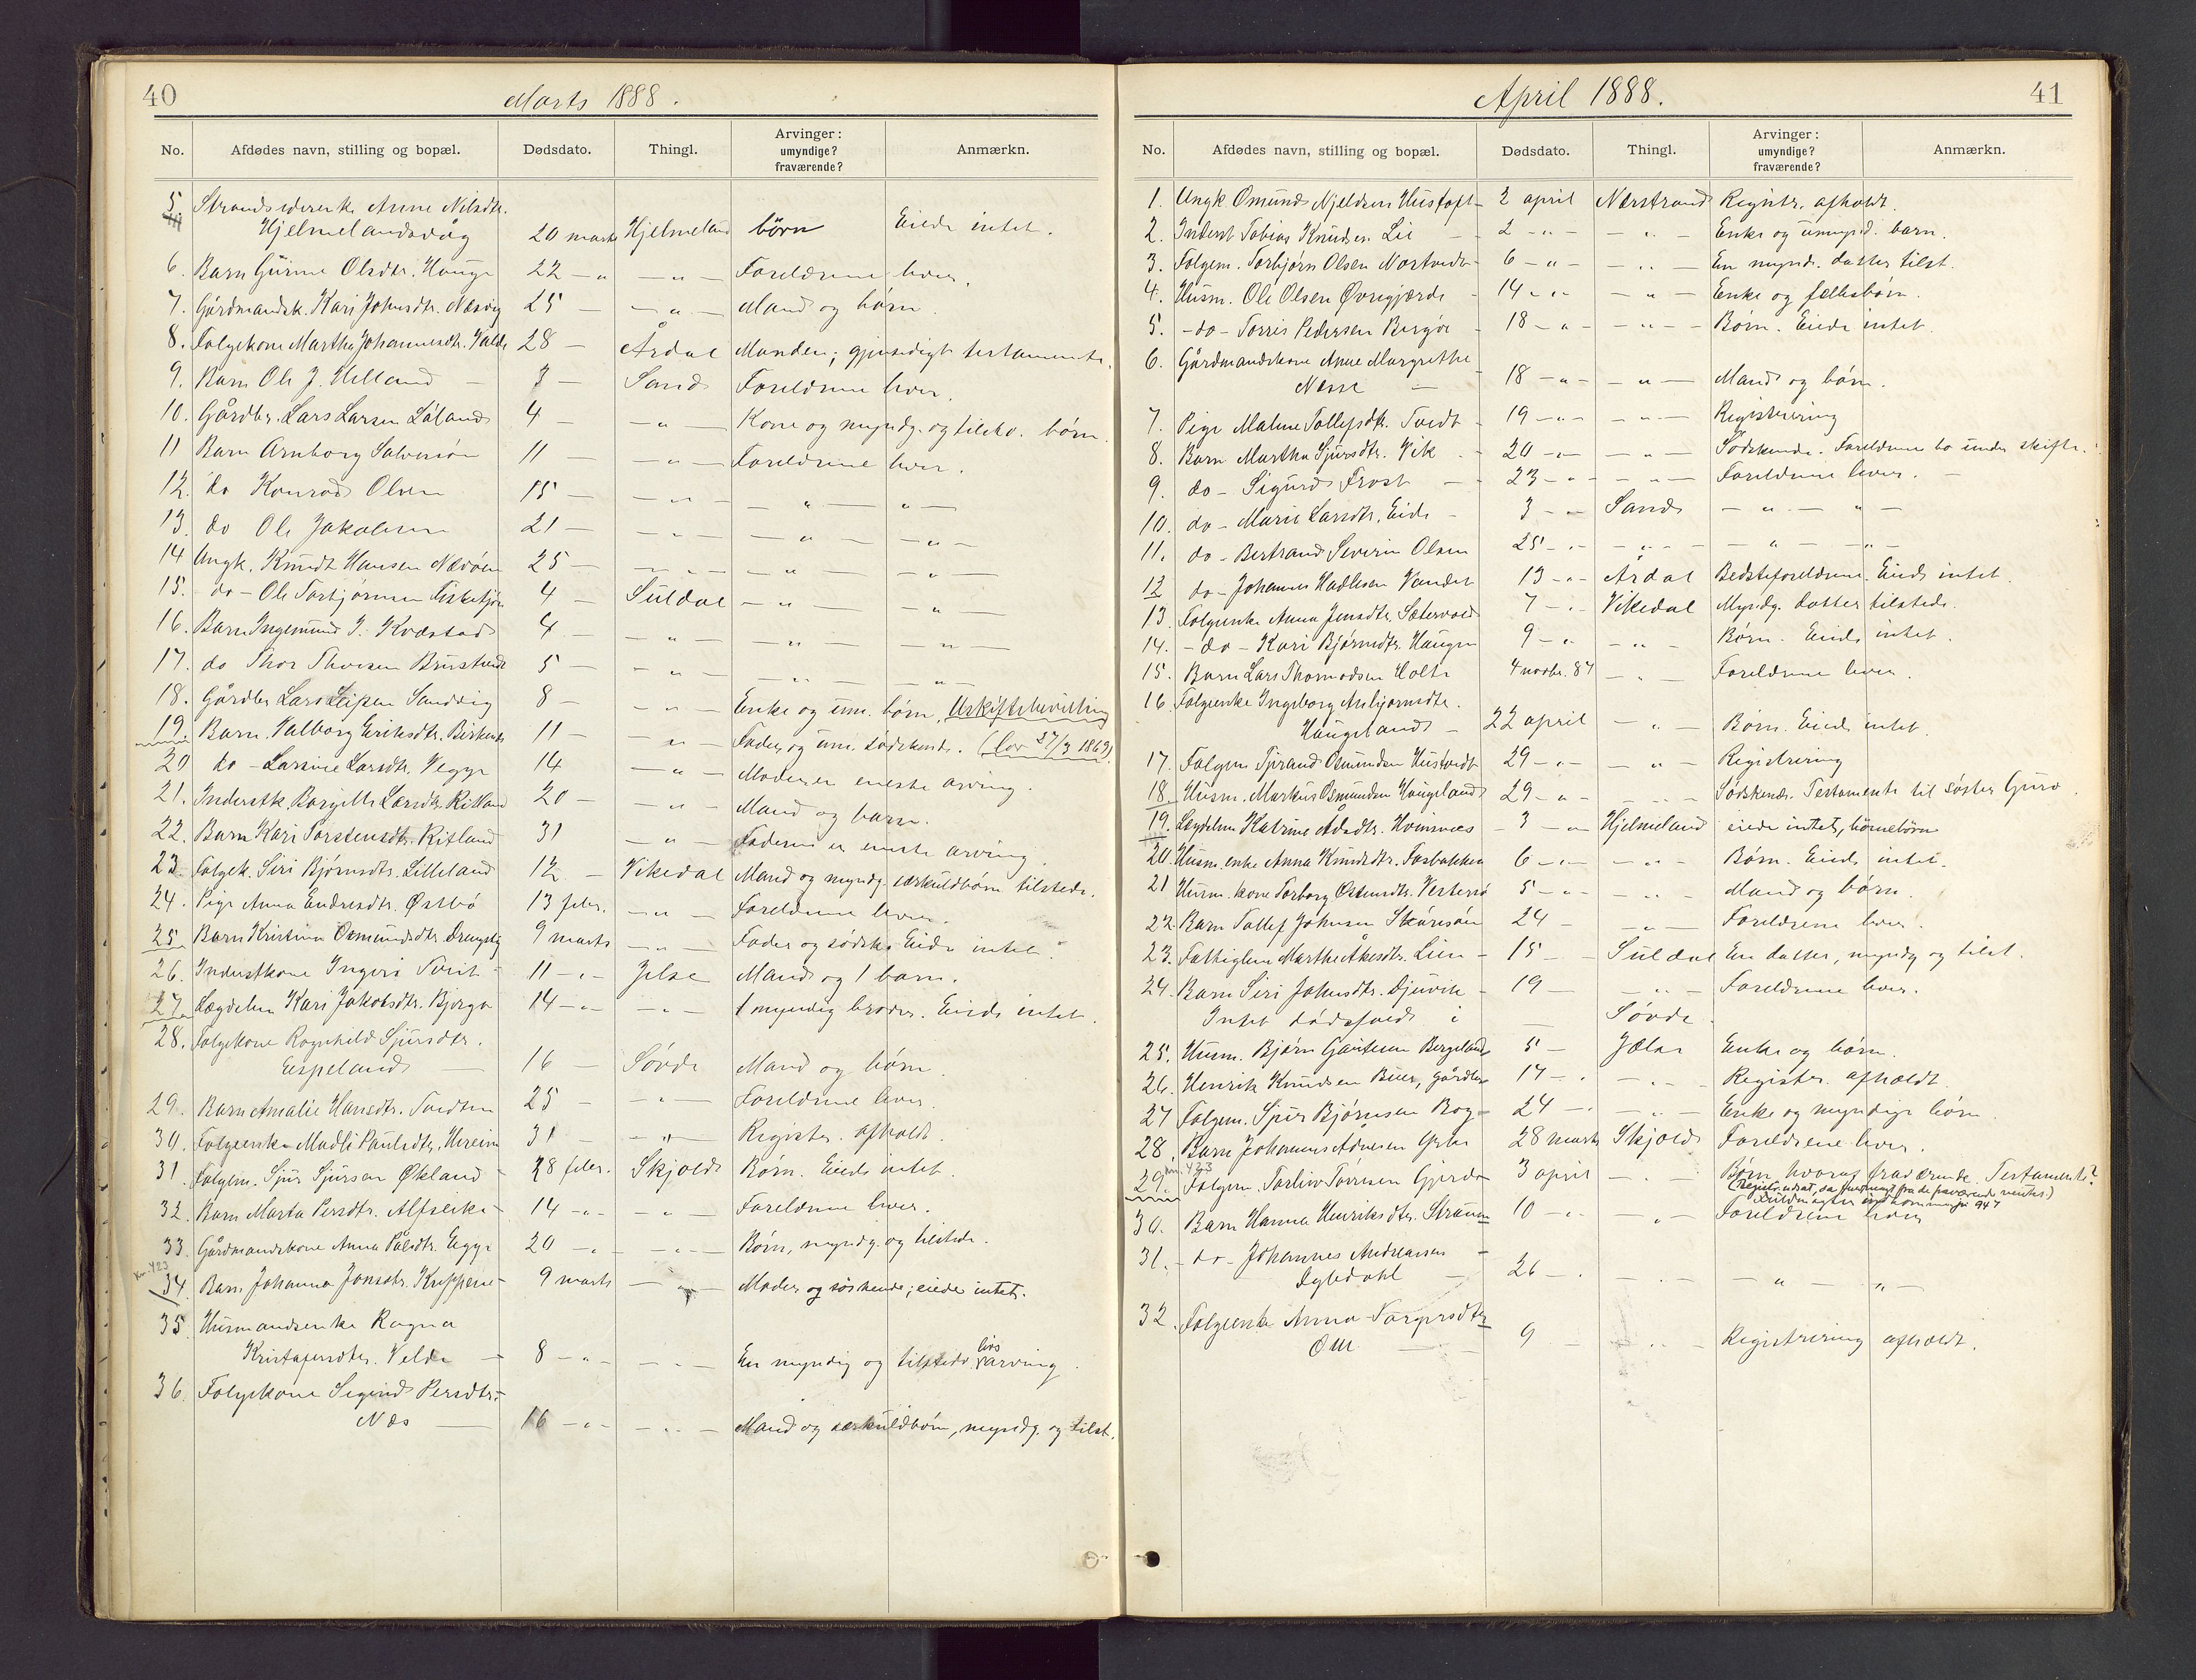 40
Marts 1888.
No. Afdødes navn, stilling og bopæl. Dødsdato. Thingl. Arvinger: umyndige? fraværende? Anmærkn.
5. Strandsidderenke Anne Nilsdtr.
Hjelmelandsvåg 20 marts Hjelmeland børn Eiede intet.
6. Barn Gurine Olsdtr. Hauge 22 - " - " - Forældrene lever.
7. Gårdmandsk. Kari Johnsdtr. Næsvig 25 - - " - Mand og børn.
8. Folgekone Martha Johannesdtr. Valde 28 - Årdal Manden; gjensidigt testamente.
9. Barn Ole J. Helland - 3 - Sand Forældrene lever.
10. Gårdbr. Lars Larsen Løland 4 - - " - Kone og myndg. og tilstv. børn.
11 Barn Arnborg Salvesøn 11 - - " - Forældrene lever.
12. do Konrad Olsen 15 - - " - - " - " -
13. do Ole Jakobsen 21 - - " - - " - " -
14 Ungk. Knudt Hansen Næsøen 25 - - " - - " - " -
15. - do - Ole Torbjørnsen Fisketjøn 4 - Suldal - " - " -
16. Barn Ingemund I. Kvæstad 4 - " - - " - " -
17. do Thor Thorsen Brustveit 5 - - " - - " - " -
18. Gårdbr Lars Leifsen Sandvig 8 - - " - Enke og um. børn. Uskiftebevilling
19. Barn Valborg Eriksdtr. Birkeneds 11 - - " - Fader og um. sødskende. (Lov 27/3 1869)
20 do - Larsine Larsdtr. Vegge 14 - " - Moderen eneste arving.
21. Inderstk. Borgille Larsdtr. Ritland 20 - - " - Mand og barn.
22. Barn Kari Torstensdtr. Ritland 31 - " - Faderen er eneste arving.
23. Folgek. Siri Bjørnsdtr. Lilleland 12 - Vikedal Mand og myndg. særkuldbørn tilstede.
24. Pige Anna Endresdtr. Østbø 13 febr. - " - Forældrene lever.
25. Barn Kristina Osmundsdtr. Drengstig 9 marts - " - Fader og sødsk. Eiede intet.
26. Inderstkone Ingeri Tveit - 11 - " - Jelse Mand og 1 barn.
27. Lægdelem Kari Jakobsdtr. Bjerga 14 - " - - " - 1 myndig broder. Eiede intet.
28. Folgekone Ragnhild Sjursdtr.
Eespeland - 16 - Søvde Mand og børn.
29. Barn Amalie Hansdtr. Tvedten 25 - - " - Forældrene lever.
30. Folgeenke Madli Paulsdtr. Hereim 31 - - " - Registr. afholdt.
31. Folgem. Sjur Sjursen Økland 28 febr. Skjold Børn. Eiede intet.
32. Barn Marta Persdtr. Alfseike - 14 - " - - " - Forældrene lever.
33. Gårdmandskone Anna Pålsdtr. Eegje 20 - " - - " - Børn, myndg. og tilstede.
kn. 423
34. Barn Johanna Jonsdtr. Kreppene - 9 marts - " - Moder og søskende; eiede intet.
35. Husmandsenke Ragna
Kristofersdtr. Velde - 8 - " - - " - En myndig og tilstede livsarving.
36. Folgekone Sigrid Persdtr. -
Næs - 16 - " - - " - Mand og særkuldbørn, myndg. og tilst.
41
April 1888.
No. Afdødes navn, stilling og bopæl. Dødsdato. Thingl. Arvinger: umyndige? fraværende? Anmærkn.
1. Ungk Omund Njeldsen Hustoft - 2 april Nærstrand Registr. afholdt.
2. Inderst Tobias Knudsen Lie - 2 - " - - " - Enke og umynd. barn.
3. Folgem. Torbjørn Olsen Nortveit - 6 - " - - " - En mynd. datter tilst.
4. Husm. Ole Olsen Øvregjærde - 14 - " - - " - Enke og fællesbørn.
5. - do - Torris Pedersen Borgøe - 18 - " - - " - Børn. Eiede intet.
6. Gårdmandskone Anne Margrethe
Nesse - 18 - " - - " - Mand og børn.
7. Pige Malene Tollefsdtr. Tvedt - 19 - " - - " - Registrering
8. Barn Martha Sjursdtr. Vik - 20 - " - - " - Sødskende. Forældrene bo under skifte.
9. do - Sigurd Frost - 23 - " - - " - Forældrene lever. -
10. do - Marie Larsdtr. Eide - 3 - " - Sand - " - " -
11. do - Bertrand Severin Olsen 25 - " - - " - - " - " -
12 do - Johannes Hadlesen Vandet 13 - " - Årdal Bedsteforældrene. Eiede intet.
13. Folgeenke Anna Jensdtr. Sætervold 7 - " - Vikedal Myndg. datter tilstede.
14. - do - Kari Bjørnsdtr. Haugen 9 - " - " - Børn. Eiede intet.
15. Barn Lars Thormodsen Holte 4 novbr. 87 - " - Forældrene lever.
16 Folgeenke Ingeborg Asbjørnsdtr.
Haugeland - 22 april - " - Børn. Eiede intet.
17. Folgem Tjerand Osmundsen Hustvedt 29 - " - - " - Registrering
18. Husm. Markus Osmundsen Haugeland 29 - " - - " - Sødskende. Testamente til søster Guro.
19. Lægdelem Katrine Adsdtr. Hviinnæs - 3 - " - Hjelmeland eiede intet, børnebørn
20. Husm. enke Anna Knudsdtr. Fosbakken 6 - " - - " - Børn. Eiede intet.
21 Husm. kone Torborg Østensdtr. Vestersø 5 - " - - " - Mand og børn.
22. Barn Tollef Johnsen Skåresåen 24 - - " - Forældrene lever.
23. Fattiglem Marthe Åkesdtr. Lien - 15 - Suldal En datter, myndg og tilst.
24. Barn Siri Johnsdtr. Djuvik - 19 - - " - Forældrene lever.
Intet dødsfald i - Søvde.
25. Husm. Bjørn Gautesen Bergeland 5 - Jelse Enke og børn.
26. Henrik Knudsen Buer, gårdbr 17 - " - " - Registr. afholdt
27 Folgem. Sjur Bjørnsen Rog - 24 - " - " - Enke og myndige børn
28. Barn Johannes Adnesen 28 marts Skjold Forældrene lever.
kn. 423
29. Folgem. Torleiv Torrisen Gjerde 3 april - " - Børn hvoraf fraværende. Testamente?
(Registr. udsat, da fra de fraværende ventes)
30. Barn Hanna Henriksdtr. Straum 10 - " - - " - Forældrene lever
31. - do - Johannes Andreassen -
Dybdahl - 26 - " - " - - " - " -
32. Folgeenke Anna Torgersdtr
Øun - 9 - - " - Registrering afholdt.